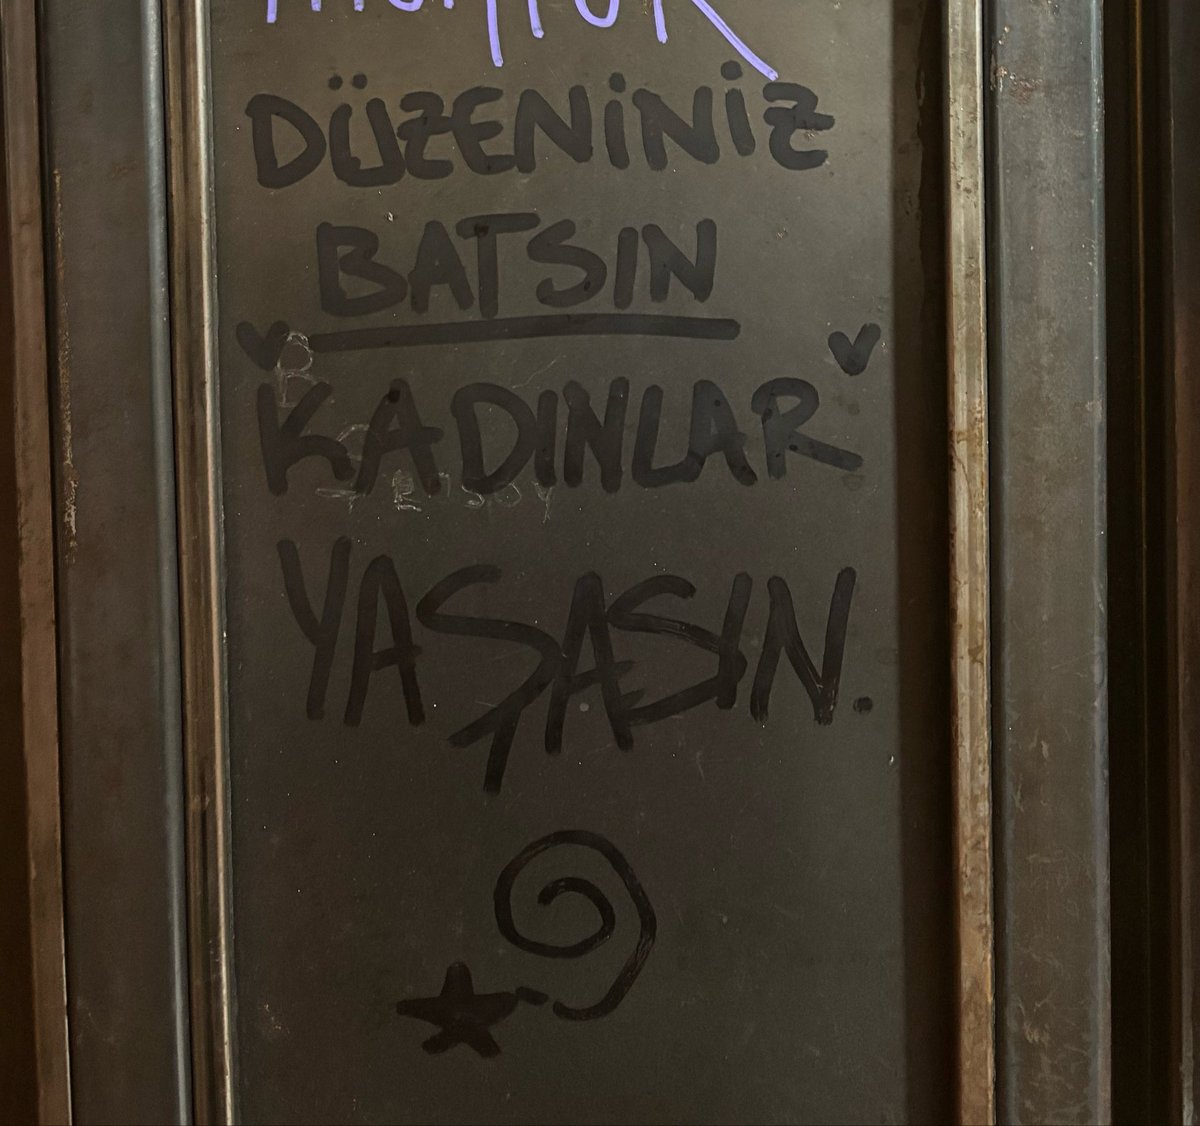 DÜZENİNİZ
BATSIN
KADINLAR
YAŞASIN.